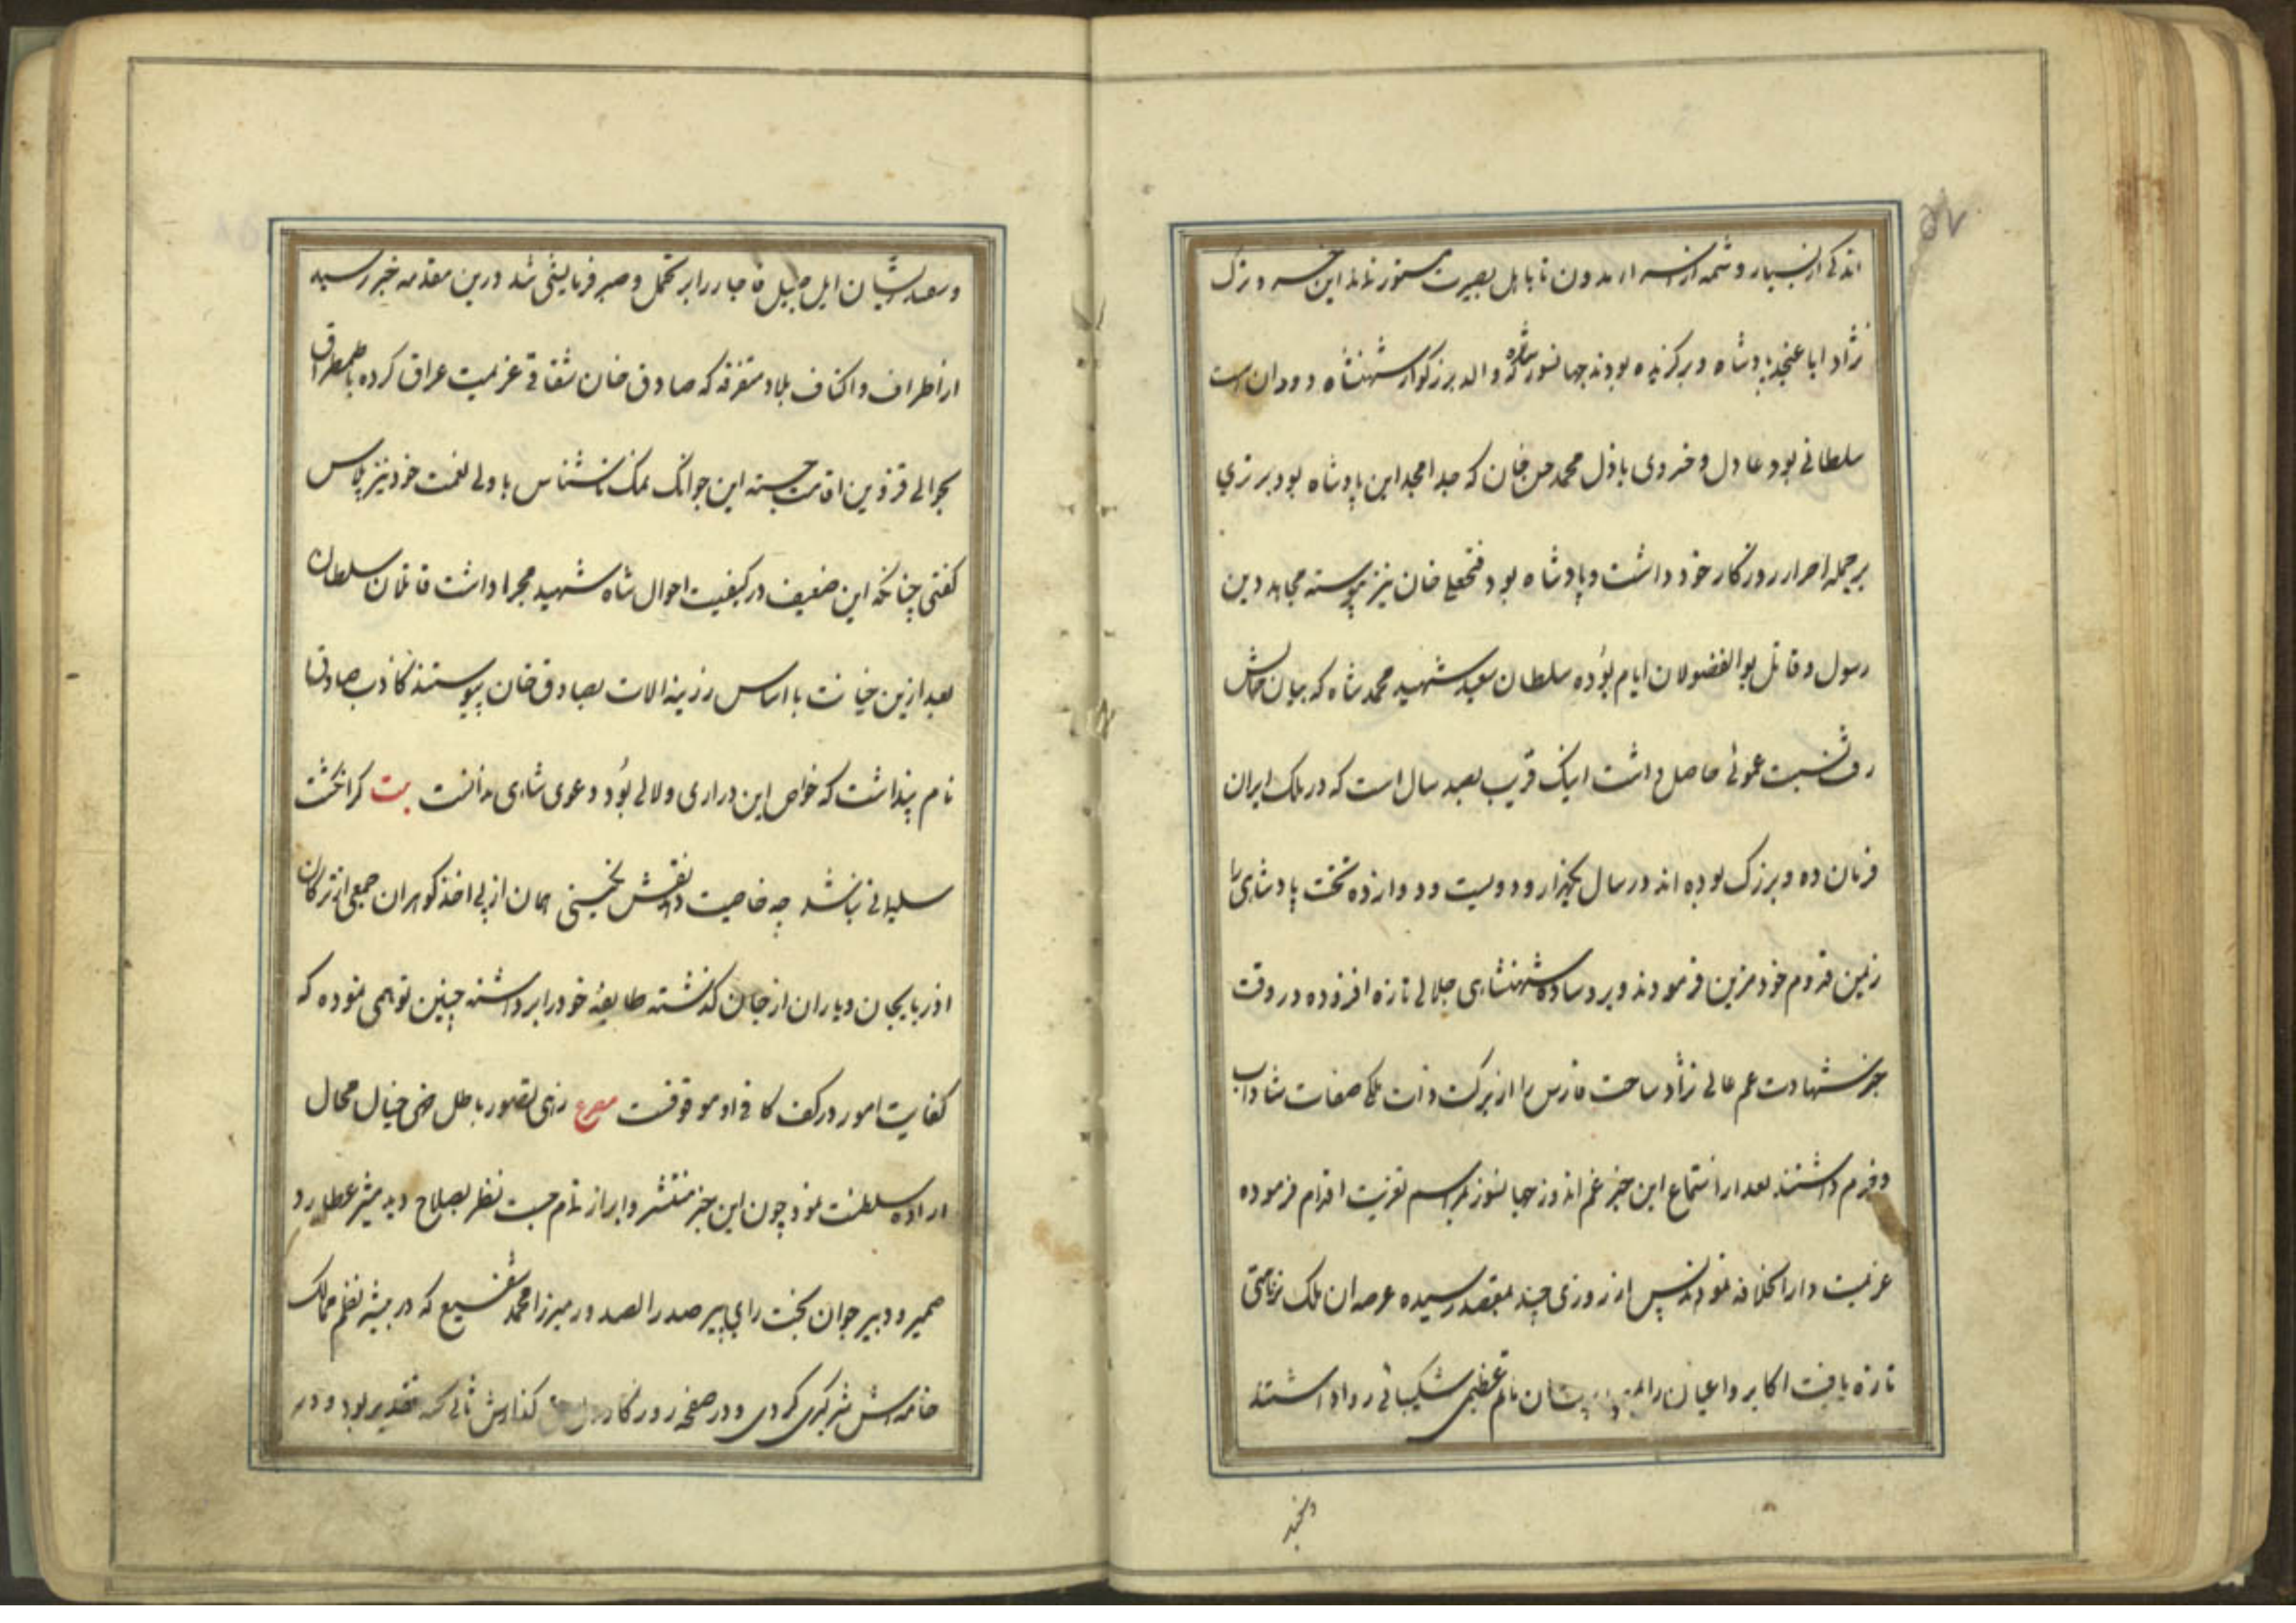 اندکی از بسیار و شمه از تا باهل بصیرت مستور نماند این خسرو ترک
نژاد ابا عنجد پادشاه و برگزیده بودند جهانسوز شاه که والد بزرگوار شهنشاه دودان است
سلطانی بود عادل و خسروی باذل محمد حسن خان که جد امجد این پادشاه بود برتری
بر جمله احرار روزگار خود داشت و پادشاه بود فتحعلی خان نیز پیوسته مجاهد دین
رسول و قاتل بوالفضولان ایام بوده سلطان سعید شهید محمد شاه که بیان حالش
رفت نسبت عموئی حاصل داشت اینک قریب بصد سال است که در ملک ایران
فرمان ده و بزرگ بوده اند در سال یکهزار و دویست و دوازده تخت پادشاهی را
زمین قدوم خود مزین فرمودند و بر وساده شهنشاهی جلالی تازه افزوده در وقت
خبر شهادت عم عالی نژاد ساحت فارس را از برکت ذات ملکی صفات شاداب
و خرم داشتند بعد از استماع این خبر غم اندوز جهانسوز بمراسم تعزیت اقدام فرموده
عزیمت دارالخلافه نمودند پس از روزی چند بمقصد رسیده عرصه ان ملک نزهتی
تازه یافت اکابر و اعیان را ماتم عظمی شکیبائی روا داشتند
و سعد ایشان ایل جلیل قاجار را بر تحمل و صبر فرمایشی شد درین مقدمه خبر رسید
از اطراف و اکناف بلاد متفرقه که صادق خان شقاقی عزیمت عراق کرده با طمطراق
بحوالی قزوین اقامت جسته این جوانک نمک ناشناس با ولی نعمت خود نیز پلاس
گفتی چنانکه این ضعیف در کیفیت احوال شاه شهید مجرا داشت قاتلان سلطان
بعد ازین خیانت با اساس رزینه الات بصادق خان پیوستند کاذب صادق
نام پنداشت که خواص این دراری و لالی بود دعوی شاهی ندانست بیت گر انگشت
سلیمانی نباشد چه خاصیت دهد نقش نگینی همان از پی اخذ گوهران جمعی از ترکان
اذربایجان و یاران از جان گذشته طایفه خود را برداشته چنین توهمی نموده که
کفایت امور در کف کافی او موقوفست مصرع زهی تصور باطل زهی خیال محال
اراده سلطنت نمود چون این خبر منتشر و ابراز تام جست نظر بصلاح دید مشیر عطارد
ضمیر و دبیر جوان بخت رای پیر صدر الصدور میرزا محمد شفیع که در بیشه نظم ممالک
خامه اش شیر گری کردی و در صفحه روزگار گذارش ثانی تقدیر بود و در
و نجد